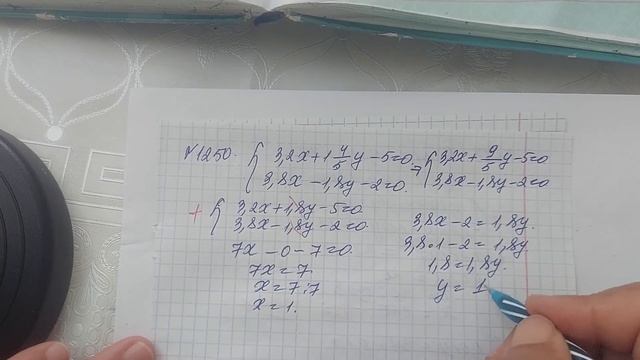 №1250. { 3,2x+1 4/5 y -5=0. => { 3,2x+ 9/5 y -5=0
3,8x -1,8y -2=0. 3,8x -1,8y -2=0
+ { 3,2x+1,8y -5=0.
3,8x -1,8y -2=0.
7x -0 -7=0.
7x = 7.
x = 7:7
x = 1.
3,8x -2 = 1,8y.
3,8·1 -2 = 1,8y.
1,8 = 1,8y.
y = 1